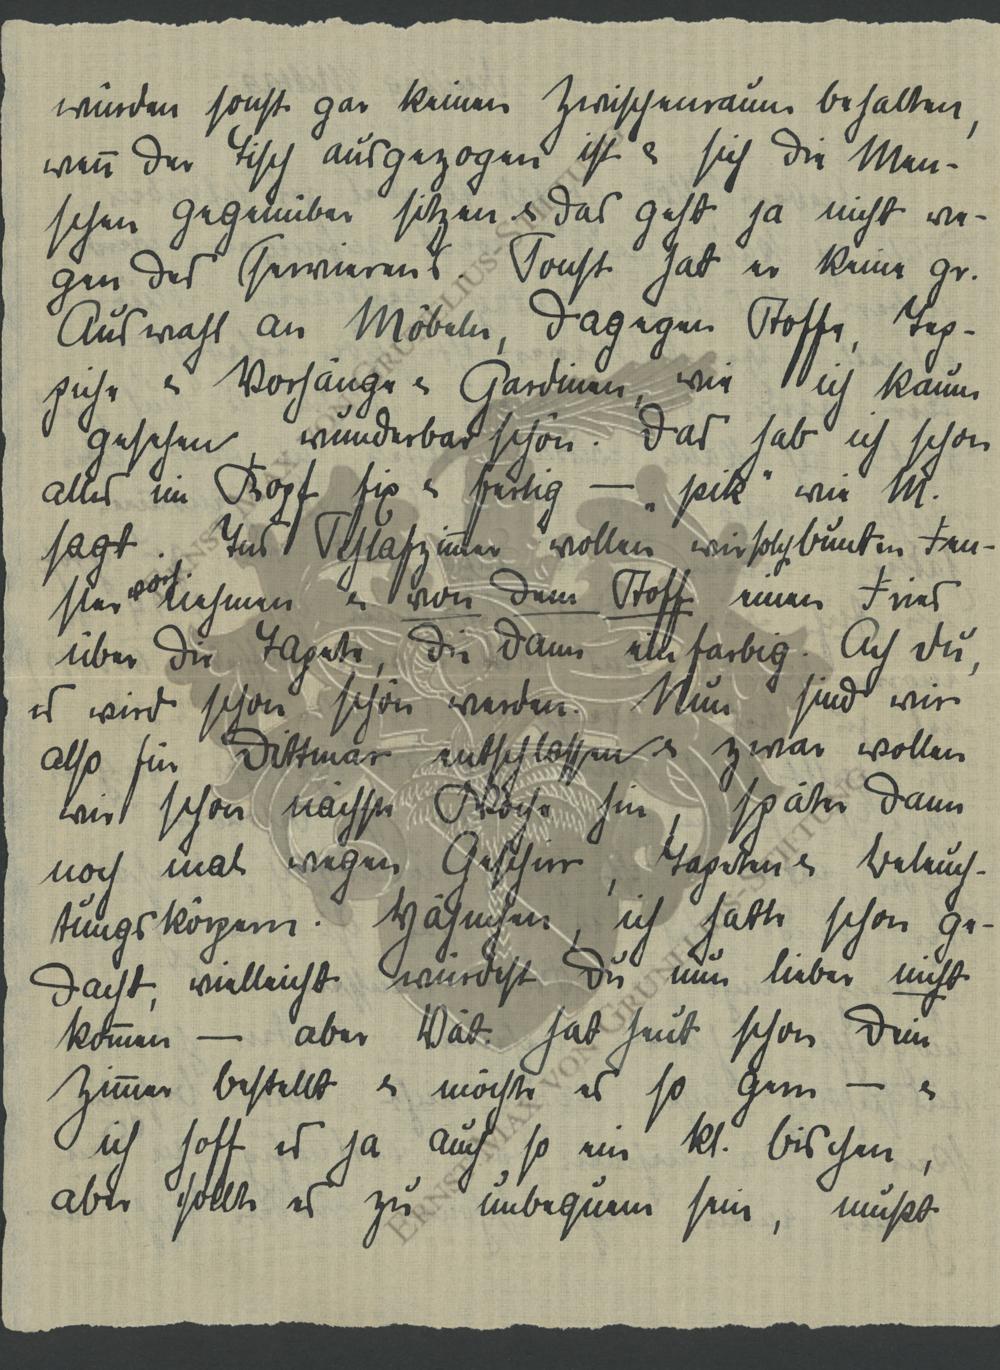 würden sonst gar keinen Zwischenraum behalten,
wen̄ der Tisch ausgezogen ist & sich die Men-
schen gegenüber sitzen & das geht ja nicht we-
gen des Servierens. Sonst hat er keine gr.
Auswahl an Möbeln, dagegen Stoffe, Tep-
piche & Vorhänge & Gardinen, wie ich kaum
gesehen wunderbar schön. Das hab ich schon
alles im Kopf fix & fertig — „pik“ wie M.
sagt. Ins Schlafzim̄er wollen wir solch bunten Fen-
ster vorh. nehmen & von dem Stoff einen Fries
über die Tapete, die dann einfarbig. Ach du,
es wird schon schön werden. Nun sind wir
also für Dittmar entschlossen & zwar wollen
wir schon nächste Woche hin, später dann
noch mal wegen Geschirr, Tapeten & Beleuch-
tungskörpern. Hähnchen, ich hatte schon ge-
dacht, vielleicht würdest Du nun lieber nicht
kom̄en — aber Vat. hat heut schon Dein
Zim̄er bestellt & möchte es so gern — &
ich hoff es ja auch so ein kl. bischen,
aber sollte es zu unbequem sein, mußt
ERNSTMAR VON GRUNELIUS-STIFTUNG
ERNSTMAR VON GRUNELIUS-STIFTUNG